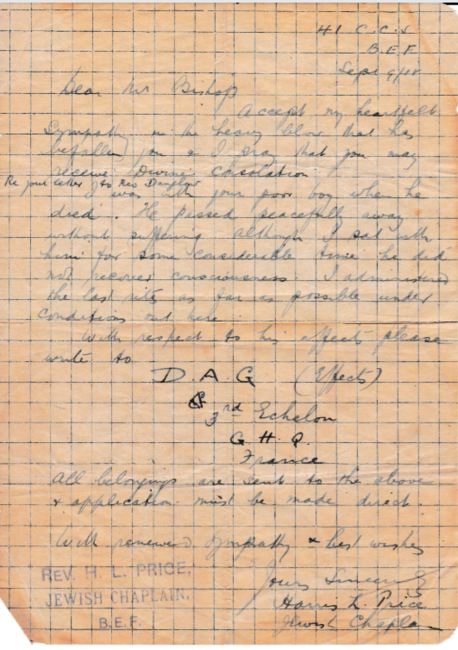 41 C.C.S
B.E.F.
Sept 9/18
Dear Mr Bishop
Accept my heartfelt
Sympathy in the heavy blow that has
befallen you & I pray that you may
receive Divine consolation.
Re your letter to Rev
I was with your poor boy when he
died. He passed peacefully away
without suffering although I sat with
him for some considerable time he did
not recover consciousness. I administered
the last rites as far as possible under
conditions out here.
With respect to his effects please
write to
D.A.G (Effects)
3rd Echelon
G.H.Q.
France
All belongings are sent to the above
& application must be made direct.
With renewed sympathy & best wishes
Yours Sincerely
Harris L. Price
Jewish Chaplain
REV. H. L. PRICE,
JEWISH CHAPLAIN.
B.E.F.